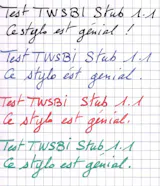 Test TWSBI Stub 1.1
Ce stylo est génial !
Test TWSBI Stub 1.1
Ce stylo est génial.
Test TWSBI Stub 1.1
Ce stylo est génial.
Test TWSBI Stub 1.1
Ce stylo est génial.